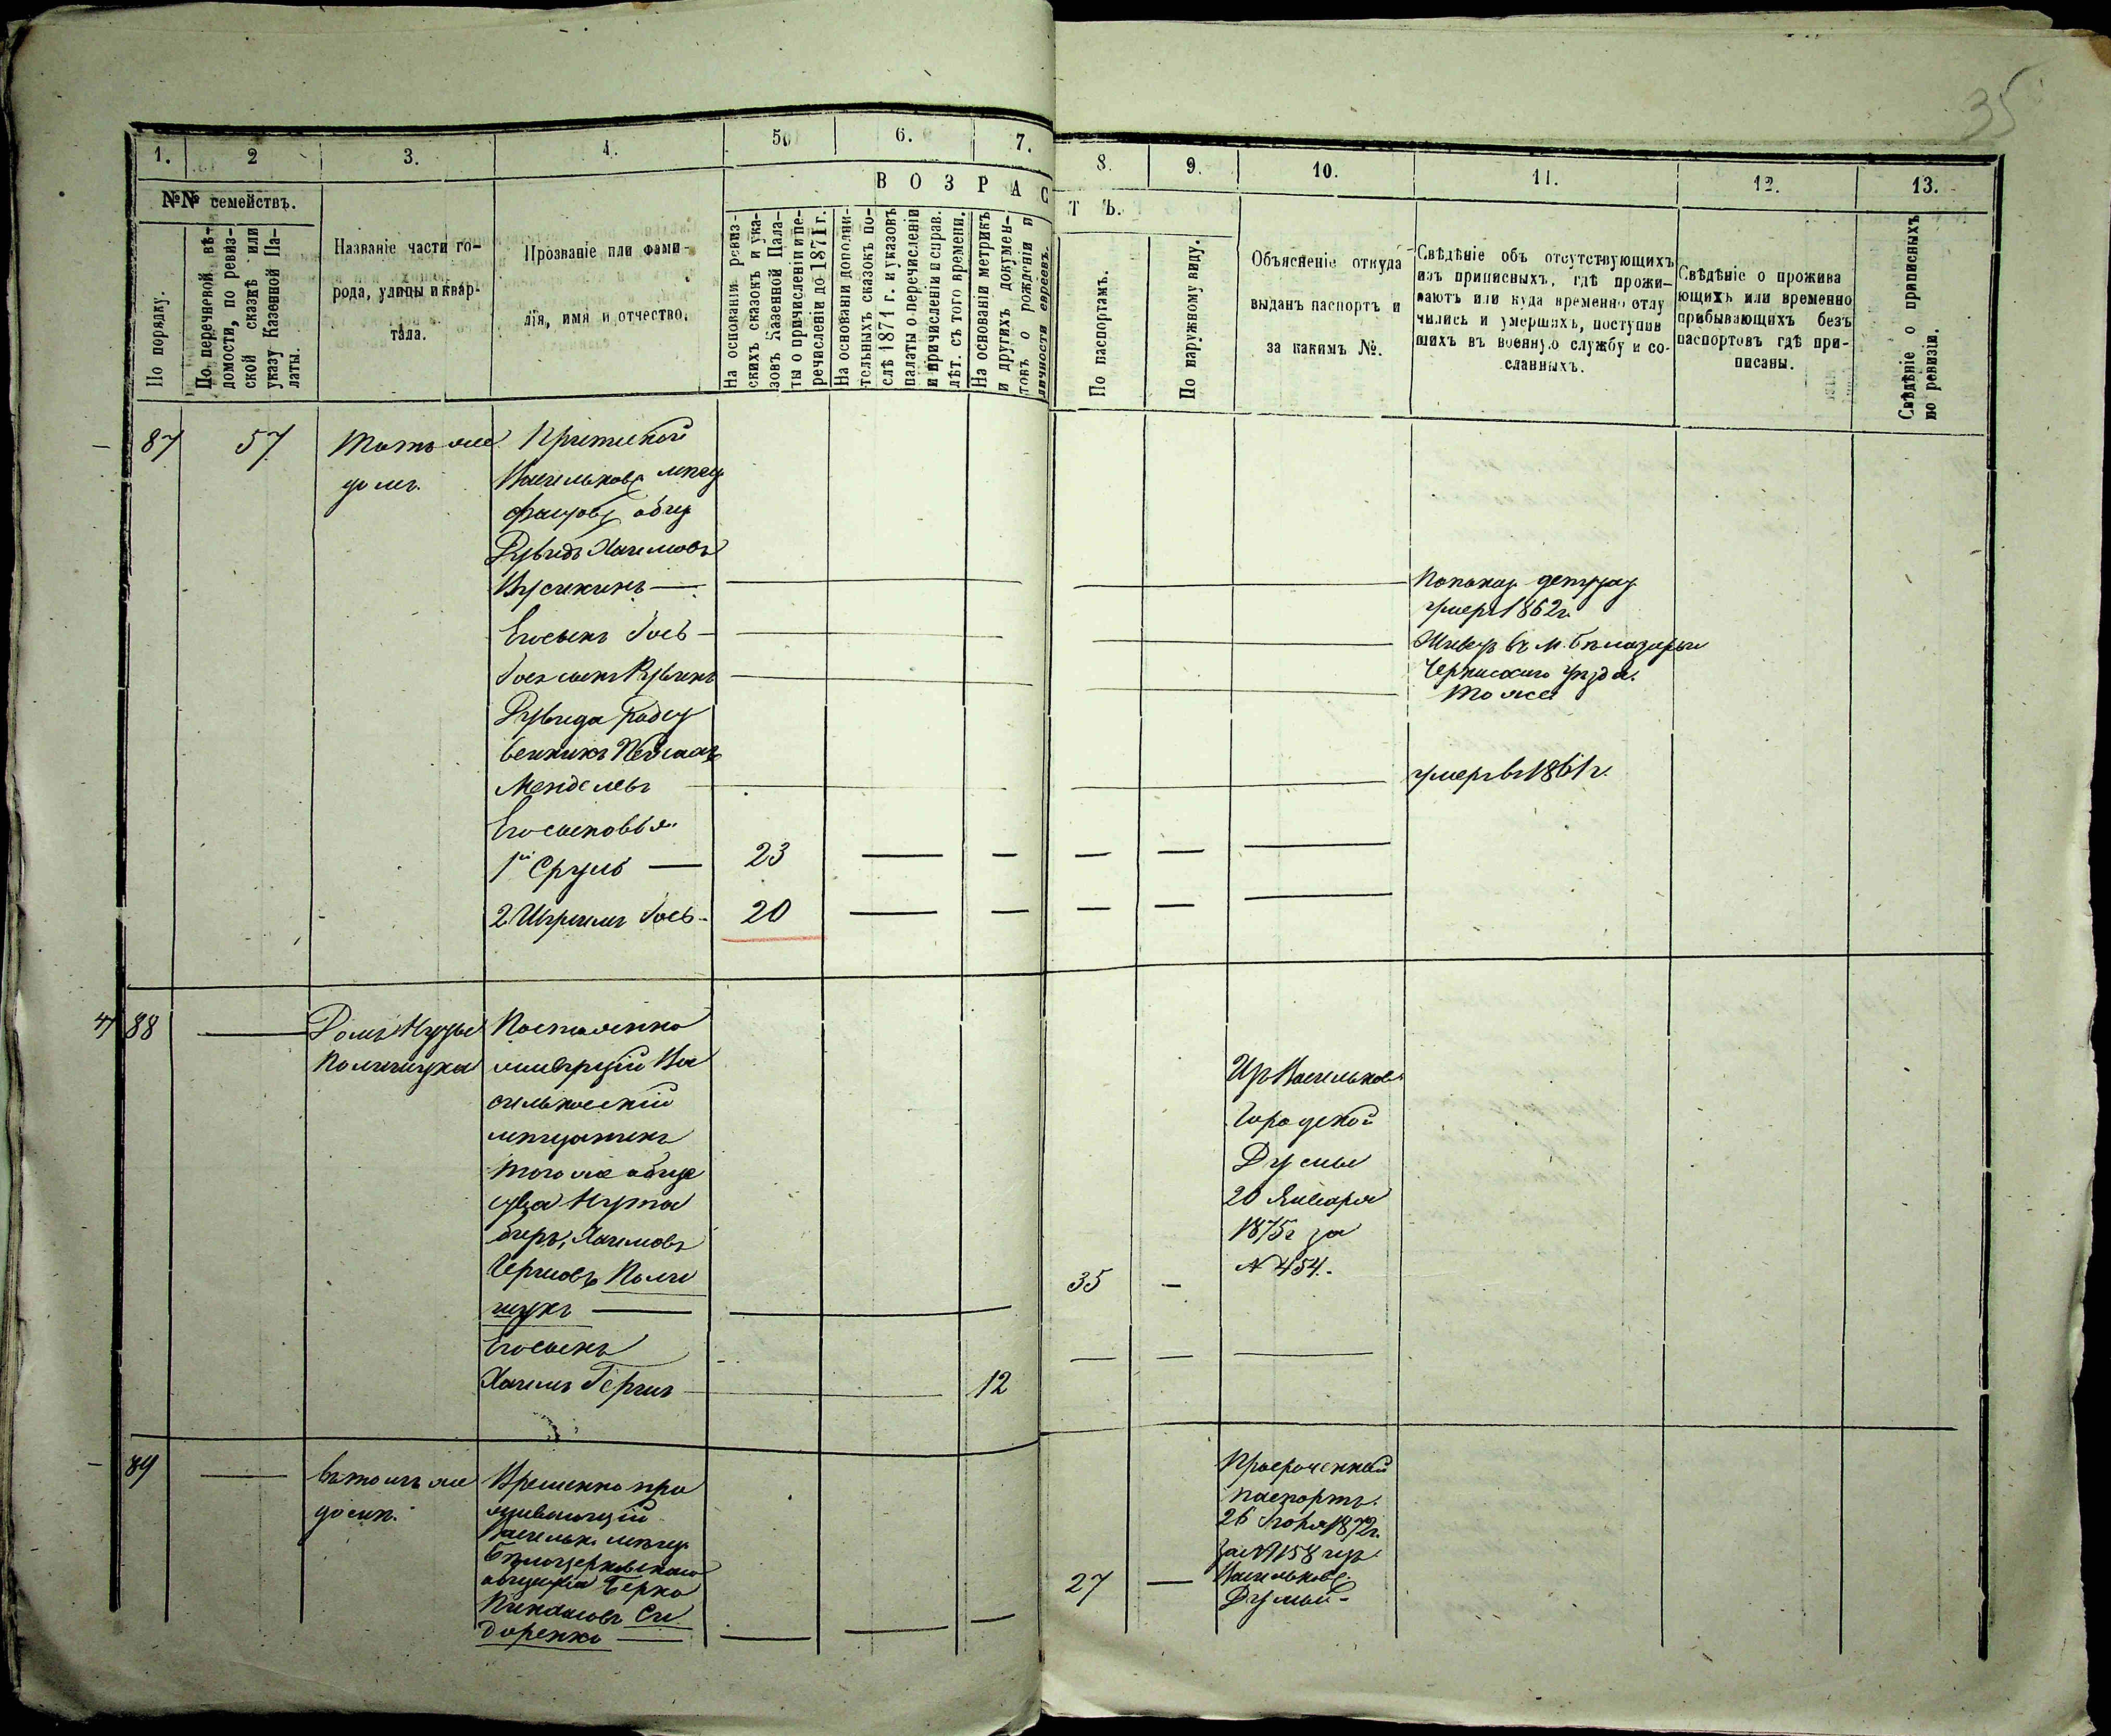 35
1. 2 3. 4. 5 6. 7. 8. 9. 10. 11. 12. 13.
№№ семействъ.
ВОЗРАСТЪ.
По порядку.
По перечневой вѣ-
домости, по ревиз-
ской сказкѣ или
указу Казенной Па-
латы.
Названіе части го-
рода, улицы и квар-
тала.
Прозваніе или фами-
лія, имя и отчество.
На основаніи ревиз-
скихъ сказокъ и ука-
зовъ Казенной Пала-
ты о причисленіи и пе-
речисленіи до 1871 г.
На основаніи дополни-
тельныхъ сказокъ по-
слѣ 1871 г. и указовъ
палаты о перечисленіи
и причисленіи и справ.
лѣт. съ того времени.
На основаніи метрикъ
и другихъ докумен-
товъ о рожденіи и
личности евреевъ.
По паспортамъ.
По наружному виду.
Объясненіе откуда
выданъ паспортъ и
за какимъ №.
Свѣдѣніе объ отсутствующихъ
изъ приписныхъ, гдѣ прожи-
ваютъ или куда временно отлу
чились и умершихъ, поступив
шихъ въ военную службу и со-
сланныхъ.
Свѣдѣніе о прожива
ющихъ или временно
прибывающихъ безъ
паспортовъ гдѣ при-
писаны.
Свѣдѣніе о приписныхъ
по ревизіи.
87 57 Тотъ же
домъ.
Васильков. мѣщ.
общ.
Рувидъ Хаимовъ
Его сынъ Іось
умеръ 1862 г.
Живетъ въ м.
Черкаскаго уѣзда.
тоже
Рувида родст
венникъ
Менделевъ умеръ въ 1861 г.
Его сыновья
1й Сруль — 23
2 Іось — 20
88 Домъ
Полищука
Постоянно
живущій Ва
сильковскій
мѣщанинъ
того же обще
ства Нута
беръ, Хаимовъ
Поли
щукъ — 35 —
Изъ Васильков.
Городской
Думы
20 Января
1875 г за
№ 454.
Его сынъ
Хаимъ Гершъ 12
89 въ томъ же
домѣ.
Временно про
живающій
Васильк. мѣщ.
Бѣлоцерковскаго
общества Берко
Пинхасовъ Си
доренко — 27 —
Просроченный
паспортъ.
26 1872 г.
за № 1158 изъ
Васильков.
Думы -